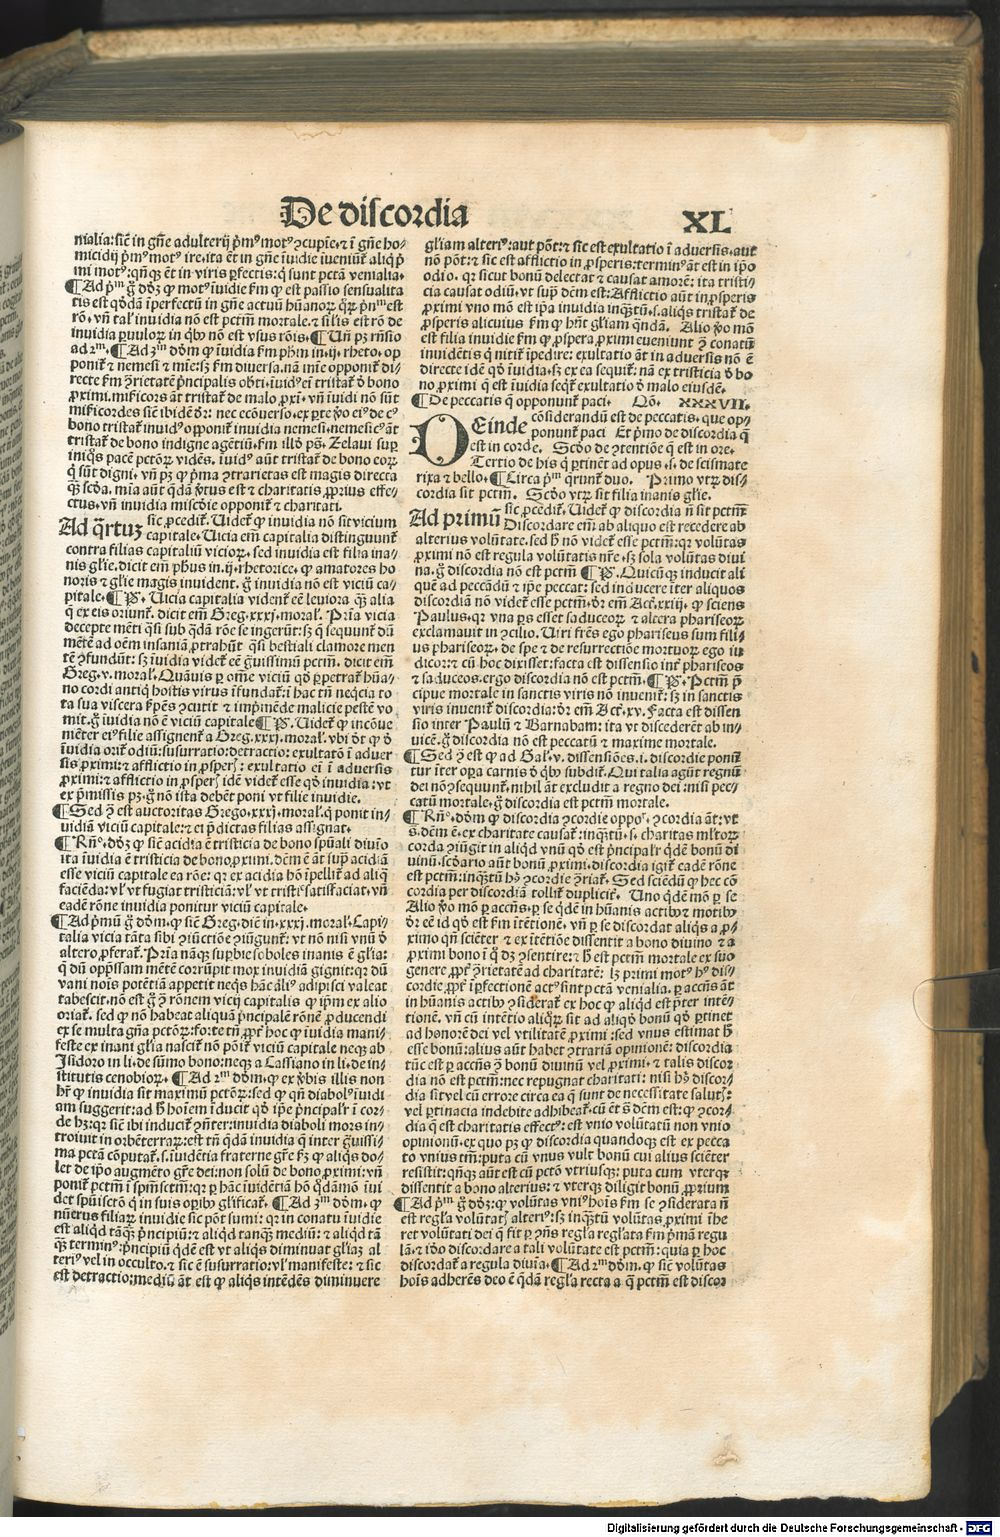 De discordia
XL
nialia: sic̄ in gn̄e adulterij p̄mꝰ motꝰ ↄcupīe, ⁊ ī gn̄e ho/
micidij p̄mꝰ motꝰ ire, ita ēt in gn̄e īuidie īueniūt̄ aliqͥ p̄
mi motꝰ: qn̄qꝫ ēt in viris ꝑfectis: qͥ sunt pctā venialia.
tis est qḋdā īperfectū in gn̄e actuū hūanoꝝ
invidia ꝑvuloꝝ in qͥbꝰ nō est vsus rōis.
ad 2ᵐ. ¶ Ad 3ᵐ dōm ꝙ īuidia
bono tristat̄ invidꝰ opponit̄ invidia nemesi.
tristat̄ de bono indigne agētiū
ctus. vn̄ invidia miscḋie opponit̄ ⁊ charitati.
Ad q̄rtuꝫ sic ꝓcedit̄. Uidet̄ ꝙ invidia nō sit vicium
capitale. Uicia em̄ capitalia distinguunt̄
contra filias capitaliū vicioꝝ. sed invidia est filia ina/
nis glīe. dicit em̄ pħus in .ij. rhetorice. ꝙ amatores ho
noris ⁊ glīe magis invident. ḡ invidia nō est viciū ca/
pitale. ¶ P̄. Uicia capitalia vident̄ eē leviora qꝫ alia
q̄ ex eis oriunt̄. dicit em̄ Greg. xxxj. moral. Prīa vicia
decepte mēti qͣsi sub qͣdā rōe se ingerūt: sꝫ q̄ sequunt̄ dū
mētē ad oēm insaniā ꝓtrahūt qͣsi bestiali clamore men
tē ↄfundūt: sꝫ īuidia videt̄ eē gͣuissimū pctm̄. dicit em̄
Greg. v. moral. Quāuis ꝑ om̄e viciū qḋ ꝑpetrat̄ hūa/
no cordi antiqͥ hostis virus īfundat̄: ī hac tn̄ neqͥcia to
ta sua viscera ẜpēs ↄcutit ⁊ imp̄mēde malicie pestē vo
mit. ḡ īuidia nō ē viciū capitale ¶ P̄. Uidet̄ ꝙ incōue
niēter eiꝰ filie assignent̄ a Greg. xxxj. moral. vbi dr̄ ꝙ ḋ
īuidia orit̄ odiū: susurratio: detractio: exultatō ī aduer
sis ꝓximi: ⁊ afflictio in ꝓsperis: exultatio em̄ ī adversis
ꝓximi: ⁊ afflictio in ꝓsperis idē videt̄ esse qḋ invidia: vt
ex p̄missis pꝫ. ḡ nō ista debēt poni vt filie invidie.
¶ Sed ↄ̄ est auctoritas Grego. xxxj. moral. q̄ ponit in/
vidiā viciū capitale: ⁊ ei p̄dictas filias assignat.
¶ Rn̄º. dōꝫ ꝙ sic̄ acidia ē tristicia de bono spūali diuīo
ita īuidia ē tristicia de bono ꝓximi. dēm ē āt supͣ acidiā
esse viciū capitale ea rōe: qꝛ ex acidia hō īpellit̄ ad aliqͥ
faciēda: vł vt fugiat tristiciā: vł vt tristicie satisfaciat. vn̄
eadē rōne invidia ponitur viciū capitale.
¶ Ad p̄mū ḡ dōm. ꝙ sic̄ Greg. diēn in .xxxj. moral. Capi/
talia vicia tāta sibi ↄiūctiōe ↄiūgunt̄: vt nō nisi vnū ḋ
altero ꝓferat̄. Prīa nāqꝫ supbie soboles inanis ē glīa:
q̄ dū opp̄ssam mētē corrūpit mox invidiā gignit: qꝛ dū
vani noīs potētiā appetit neqͥs hāc aliꝰ adipisci valeat
tabescit.
oriat̄. sed ꝙ nō habeat aliquā p̄ncipalē rōnē ꝓducendi
ex se multa gn̄a pctōꝝ: forte tn̄ ꝓpt̄ hoc ꝙ īuidia mani/
feste ex inani glīa nascit̄ nō poīt̄ viciū capitale neqꝫ ab
Isidoro in li. de sūmo bono: neqꝫ a Cassiano in li. de in/
stitutis cenobioꝝ. ¶ Ad 2ᵐ dōm. ꝙ ex v̄bis illis non
hr̄ ꝙ invidia sit maximū pctōꝝ: sed ꝙ qn̄ diabolꝰ īuidi
am suggerit: ad ħ hoīem īducit qḋ ipē p̄ncipalr̄ ī cor/
de hꝫ: qꝛ sic̄ ibi inducit̄ ↄn̄ter: invidia diaboli mors in/
troiuit in orbē terraꝝ: est tn̄ qͣdā invidia q̄ inter gͣuissi/
ma pctā cōputat̄. s. īuidētia fraterne gr̄e ẜm ꝙ aliqͥs do/
let de ipō augmēto gr̄e dei: non solū de bono ꝓximi: vn̄
ponit̄ pctm̄ ī spm̄ sctm̄: qꝛ ꝑ hāc īuidētiā hō qͣdāmō īui
det spūi sctō qͥ in suis oꝑibꝰ glīficat̄. ¶ Ad 3ᵐ dōm. ꝙ
nūerus filiaꝝ invidie sic pōt sumi: qꝛ in conatu īuidie
est aliqͥd tāqꝫ p̄ncipiū: ⁊ aliqͥd tanqꝫ mediū: ⁊ aliqͥd tā
qꝫ terminꝰ: p̄ncipiū qͥdē est vt aliqͥs diminuat glīaꝫ al
teriꝰ vel in occulto. ⁊ sic ē susurratio: vł manifeste: ⁊ sic
est detractio: mediū āt est ꝙ aliqͥs intēdēs diminuere
gliam alteriꝰ: aut pōt: ⁊ sic est exultatio ī adversis. aut
nō pōt: ⁊ sic est afflictio in ꝓsperis: terminꝰ āt est in ipō
odio. qꝛ sicut bonū delectat ⁊ causat amorē: ita tristi/
cia causat odiū. vt supͣ dēm est: Afflictio aūt in ꝓsperis
ꝓximi vno mō est ipā invidia inqͣꝫtū. s. aliqͥs tristat̄ de
ꝓsperis alicuius ẜm ꝙ hn̄t glīam qͣndā. Alio v̄o mō
est filia invidie ẜm ꝙ ꝓspera ꝓximi eveniunt ↄ̄ conatū
invidētis qͥ nitit̄ īpedire: exultatio āt in adversis nō ē
directe idē qḋ īuidia. sꝫ ex ea sequit̄. nā ex tristicia ḋ bo
no ꝓximi q̄ est īuidia seqͥt̄ exultatio ḋ malo eiusdē.
¶ De peccatis q̄ opponunt̄ paci. Qō. XXXVII.
DEinde cōsiderandū est de peccatis. que op/
ponunt̄ paci Et p̄mo de discordia q̄
est in corde. Scḋo de ↄtentiōe q̄ est in ore.
Tertio de his q̄ ꝑtinēt ad opus. s. de scismate
rixa ⁊ bello. ¶ Circa p̄ᵐ qrunt̄ duo. Primo vtꝝ dis/
cordia sit pctm̄. Scḋo vtꝝ sit filia inanis glīe.
Ad primū sic ꝓcedit̄. Uidet̄ ꝙ discordia n̄ sit pctm̄
Discordare em̄ ab aliquo est recedere ab
alterius volūtate. sed ħ nō videt̄ esse pctm̄: qꝛ volūtas
ꝓximi nō est regula volūtatis nr̄e. sꝫ sola volūtas divi
na. ḡ discordia nō est pctm̄ ¶ P̄. Quicūqꝫ inducit ali
quē ad peccādū ⁊ ipē peccat: sed inducere īter aliquos
discordiā nō videt̄ esse pctm̄. dr̄ em̄ Act. xxiij. ꝙ sciens
Paulus. qꝛ vna ps esset saduceoꝝ ⁊ altera phariseoꝝ
exclamavit in ↄcilio. Uiri fr̄es ego phariseus sum fili/
us phariseoꝝ. de spe ⁊ de resurrectiōe mortuoꝝ ego iu
dicor: ⁊ cū hoc dixisset: facta est dissensio int̄ phariseos
⁊ saduceos. ergo discordia nō est pctm̄. ¶ P̄. Pctm̄ p̄
cipue mortale in sanctis viris nō invenit̄: sꝫ in sanctis
viris invenit̄ discordia: dr̄ em̄ Act. xv. Facta est dissen
sio inter Paulū ⁊ Barnabam: ita vt discederēt ab in/
uicē. ḡ discordia nō est peccatū ⁊ maxime mortale.
¶ Sed ↄ̄ est ꝙ ad Gal. v. dissensiōes. i. discordie ponū
tur īter oꝑa carnis ḋ qͥbꝰ subdit̄. Qui talia agūt regnū
dei nō ↄsequunt̄. nihil āt excludit a regno dei: nisi pec/
catū mortale. ḡ discordia est pctm̄ mortale.
¶ Rn̄º. dōm ꝙ discordia ↄcordie oppoꝰ. ↄcordia āt: vt
s. dēm ē. ex charitate causat̄: inqͣꝫtū. s. charitas mltoꝝ
corda ↄiūgit in aliqͥd vnū qḋ est p̄ncipalr̄ qͥdē bonū di
uinū. scḋario aūt bonū ꝓximi. discordia igit̄ eadē rōne
est pctm̄: inqͣꝫtū hꝰ ↄcordie ↄriat̄. Sed sciēdū ꝙ hec cō
cordia per discordiā tollit̄ duplicit̄. Uno qͥdē mō ꝑ se
Alio v̄o mō ꝑ accn̄s. ꝑ se qͥdē in hūanis actibꝰ ⁊ motibꝰ
dr̄ eē id qḋ est ẜm ītētionē. vn̄ ꝑ se discordat aliqͥs a ꝓ/
ximo qn̄ sciēter ⁊ ex ītētiōe dissentit a bono divino ⁊ a
ꝓximi bono ī qͦ dꝫ ↄsentire: ⁊ ħ est pctm̄ mortale ex suo
genere ꝓpt̄ ↄ̄rietatē ad charitatē: lꝫ primi motꝰ hꝰ dis/
cordie ꝓpt̄ īꝑfectionē actꝰ sint pctā venialia. ꝑ accn̄s āt
in hūanis actibꝰ ↄsiderat̄ ex hoc ꝙ aliqͥd est p̄ter intē/
tionē. vn̄ cū intētio aliqͦꝝ sit ad aliqḋ bonū qḋ ꝑtinet
ad honorē dei vel vtilitatē ꝓximi: sed vnus estimat ħ
esse bonū: alius aūt habet ↄtrariā opinionē: discordia
tūc est ꝑ accn̄s ↄ̄ bonū divinū vel ꝓximi. ⁊ talis discor
dia nō est pctm̄: nec repugnat charitati: nisi hꝰ discor/
dia sit vel cū errore circa ea q̄ sunt de necessitate salutis:
vel ꝑtinacia indebite adhibeat̄. cū ēt s̄ dēm est: ꝙ ↄcor/
dia q̄ est charitatis effectꝰ: est vnio volūtatū non vnio
opinionū. ex quo pꝫ ꝙ discordia quandoqꝫ est ex pecca
to vnius tm̄: puta cū vnus vult bonū cui alius sciēter
resistit: qn̄qꝫ aūt est cū pctō vtriusqꝫ: puta cum vterqꝫ
dissentit a bono alterius: ⁊ vterqꝫ diligit bonū ꝓprium
¶ Ad p̄ᵐ ḡ dōꝫ: ꝙ volūtas vniꝰ hoīs ẜm se ↄsiderata n̄
est regl̄a volūtatis alteriꝰ: sꝫ inqͣꝫtū volūtas ꝓximi īhe
ret volūtati dei q̄ fit ꝑ ↄn̄s regl̄a regl̄ata ẜm p̄mā regu
lā. ⁊ iḋo discordare a tali volūtate est pctm̄: quia ꝑ hoc
discordat̄ a regula divīa. ¶ Ad 2ᵐ dōm. ꝙ sic̄ volūtas
hoīs adherēs deo ē qͣdā regl̄a recta a q̄ pctm̄ est discor
Digitalisierung gefördert durch die Deutsche Forschungsgemeinschaft - DFG